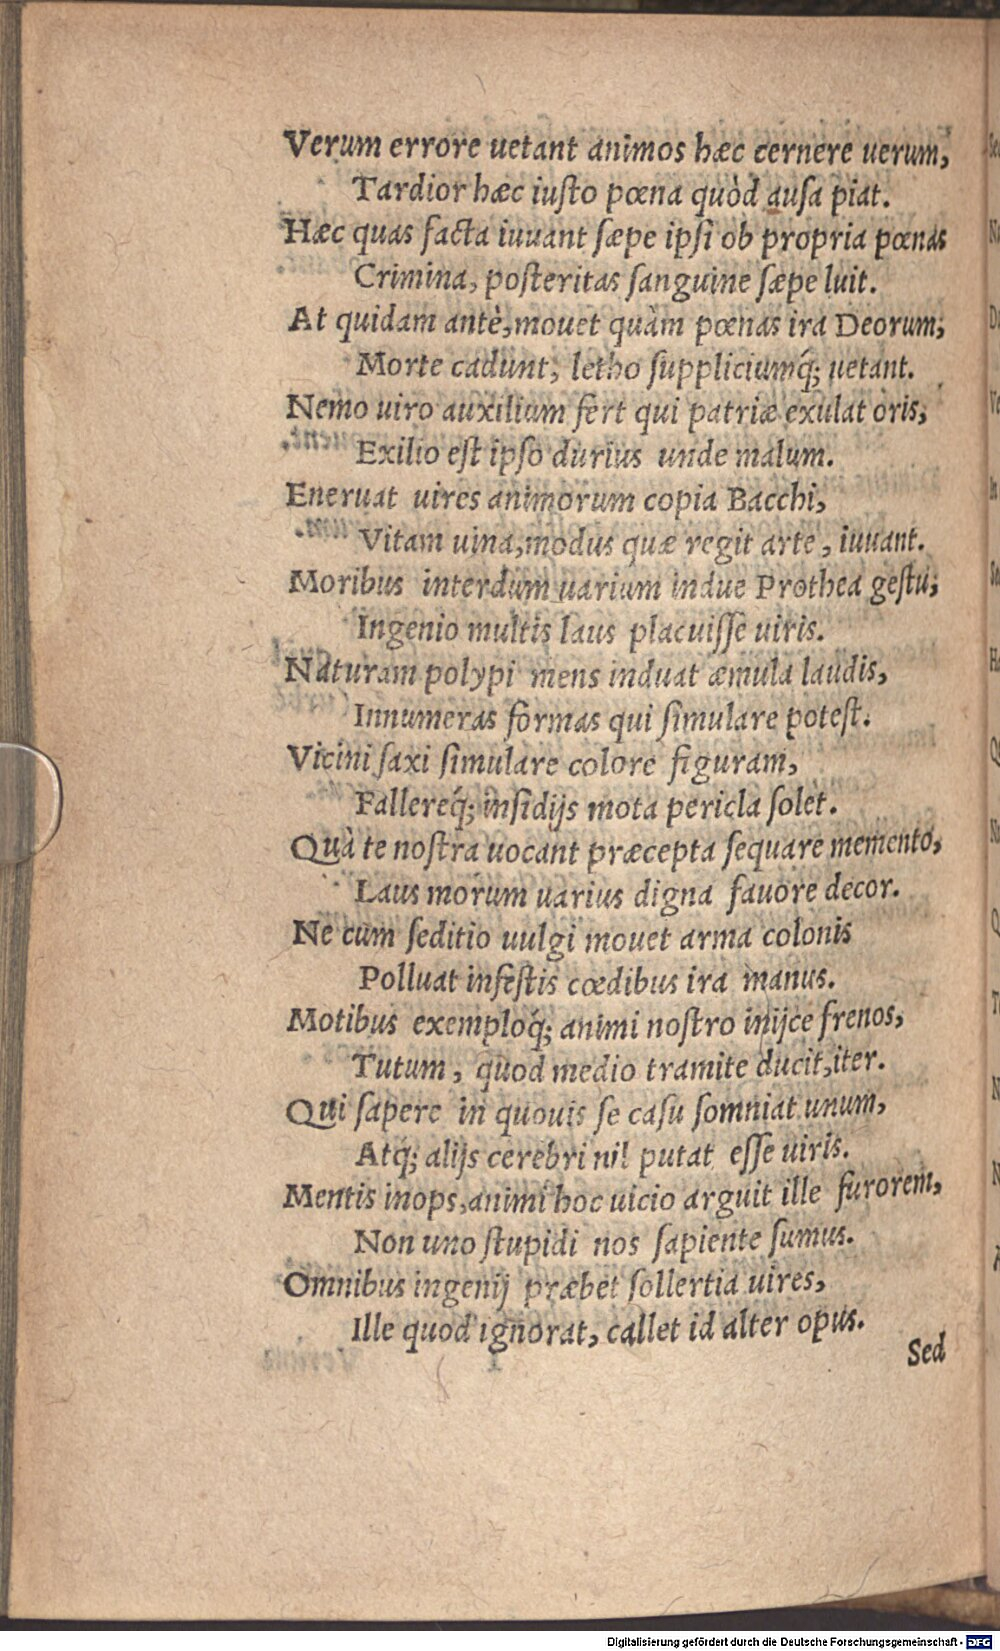 Verum errore uetant animos hæc cernere uerum,
Tardior hæc iusto pœna quòd ausa piat.
Hæc quas facta iuuant sæpe ipsi ob propria pœnas
Crimina, posteritas sanguine sæpe luit.
At quidam antè, mouet quàm pœnas ira Deorum,
Morte cadunt, letho suppliciumq́; uetant.
Nemo uiro auxilium fert qui patriæ exulat oris,
Exilio est ipso durius unde malum.
Eneruat uires animorum copia Bacchi,
Vitam uina, modus quæ regit arte, iuuant.
Moribus interdum uarium indue Prothea gestu,
Ingenio multis laus placuisse uiris.
Naturam polypi mens induat æmula laudis,
Innumeras formas qui simulare potest.
Vicini saxi simulare colore figuram,
Fallereq́; insidijs mota pericla solet.
Quà te nostra uocant præcepta sequare memento,
Laus morum uarius digna fauore decor.
Ne cum seditio uulgi mouet arma colonis
Polluat infestis cœdibus ira manus.
Motibus exemploq́; animi nostro inijce frenos,
Tutum, quod medio tramite ducit, iter.
Qui sapere in quouis se casu somniat unum,
Atq́; alijs cerebri nil putat esse uiris.
Mentis inops, animi hoc uicio arguit ille furorem,
Non uno stupidi nos sapiente sumus.
Omnibus ingenij præbet sollertia uires,
Ille quod ignorat, callet id alter opus.
Sed
Digitalisierung gefördert durch die Deutsche Forschungsgemeinschaft - DFG